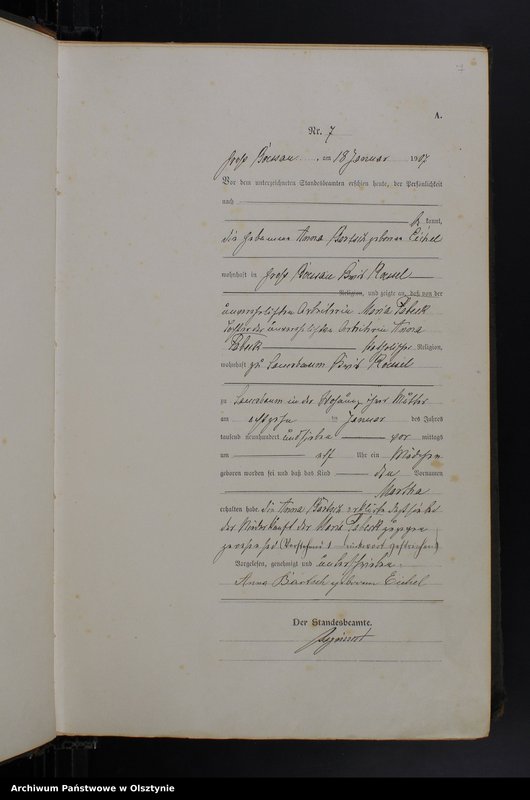 7
A.
Nr. 7
Groß Bößau, am 18 Januar 1907
Vor dem unterzeichneten Standesbeamten erschien heute, der Persönlichkeit
nach
kannt,
die Hebamme Anna Bartsch geborene Eichel
wohnhaft in Groß Bößau Kreis Rößel
Religion, und zeigte an, daß von der
unverehelichten Arbeiterin Maria
Tochter der unverehelichten Arbeiterin Anna
katholischer Religion,
wohnhaft zu Lauterbaum Kreis Rößel
zu in der Wohnung ihrer Mutter
am im Januar des Jahres
tausend neunhundert und sieben vor mittags
um elf Uhr ein Mädchen
geboren worden sei und daß das Kind den Vornamen
Martha
erhalten habe. Die Anna Bartsch erklärte daß sie bei
der Niederkunft der Maria zugegen
gewesen sei. Vorstehend 1 Druckwort gestrichen
Vorgelesen, genehmigt und unterschrieben
Anna Bartsch geborene Eichel
Der Standesbeamte.
Archiwum Państwowe w Olsztynie